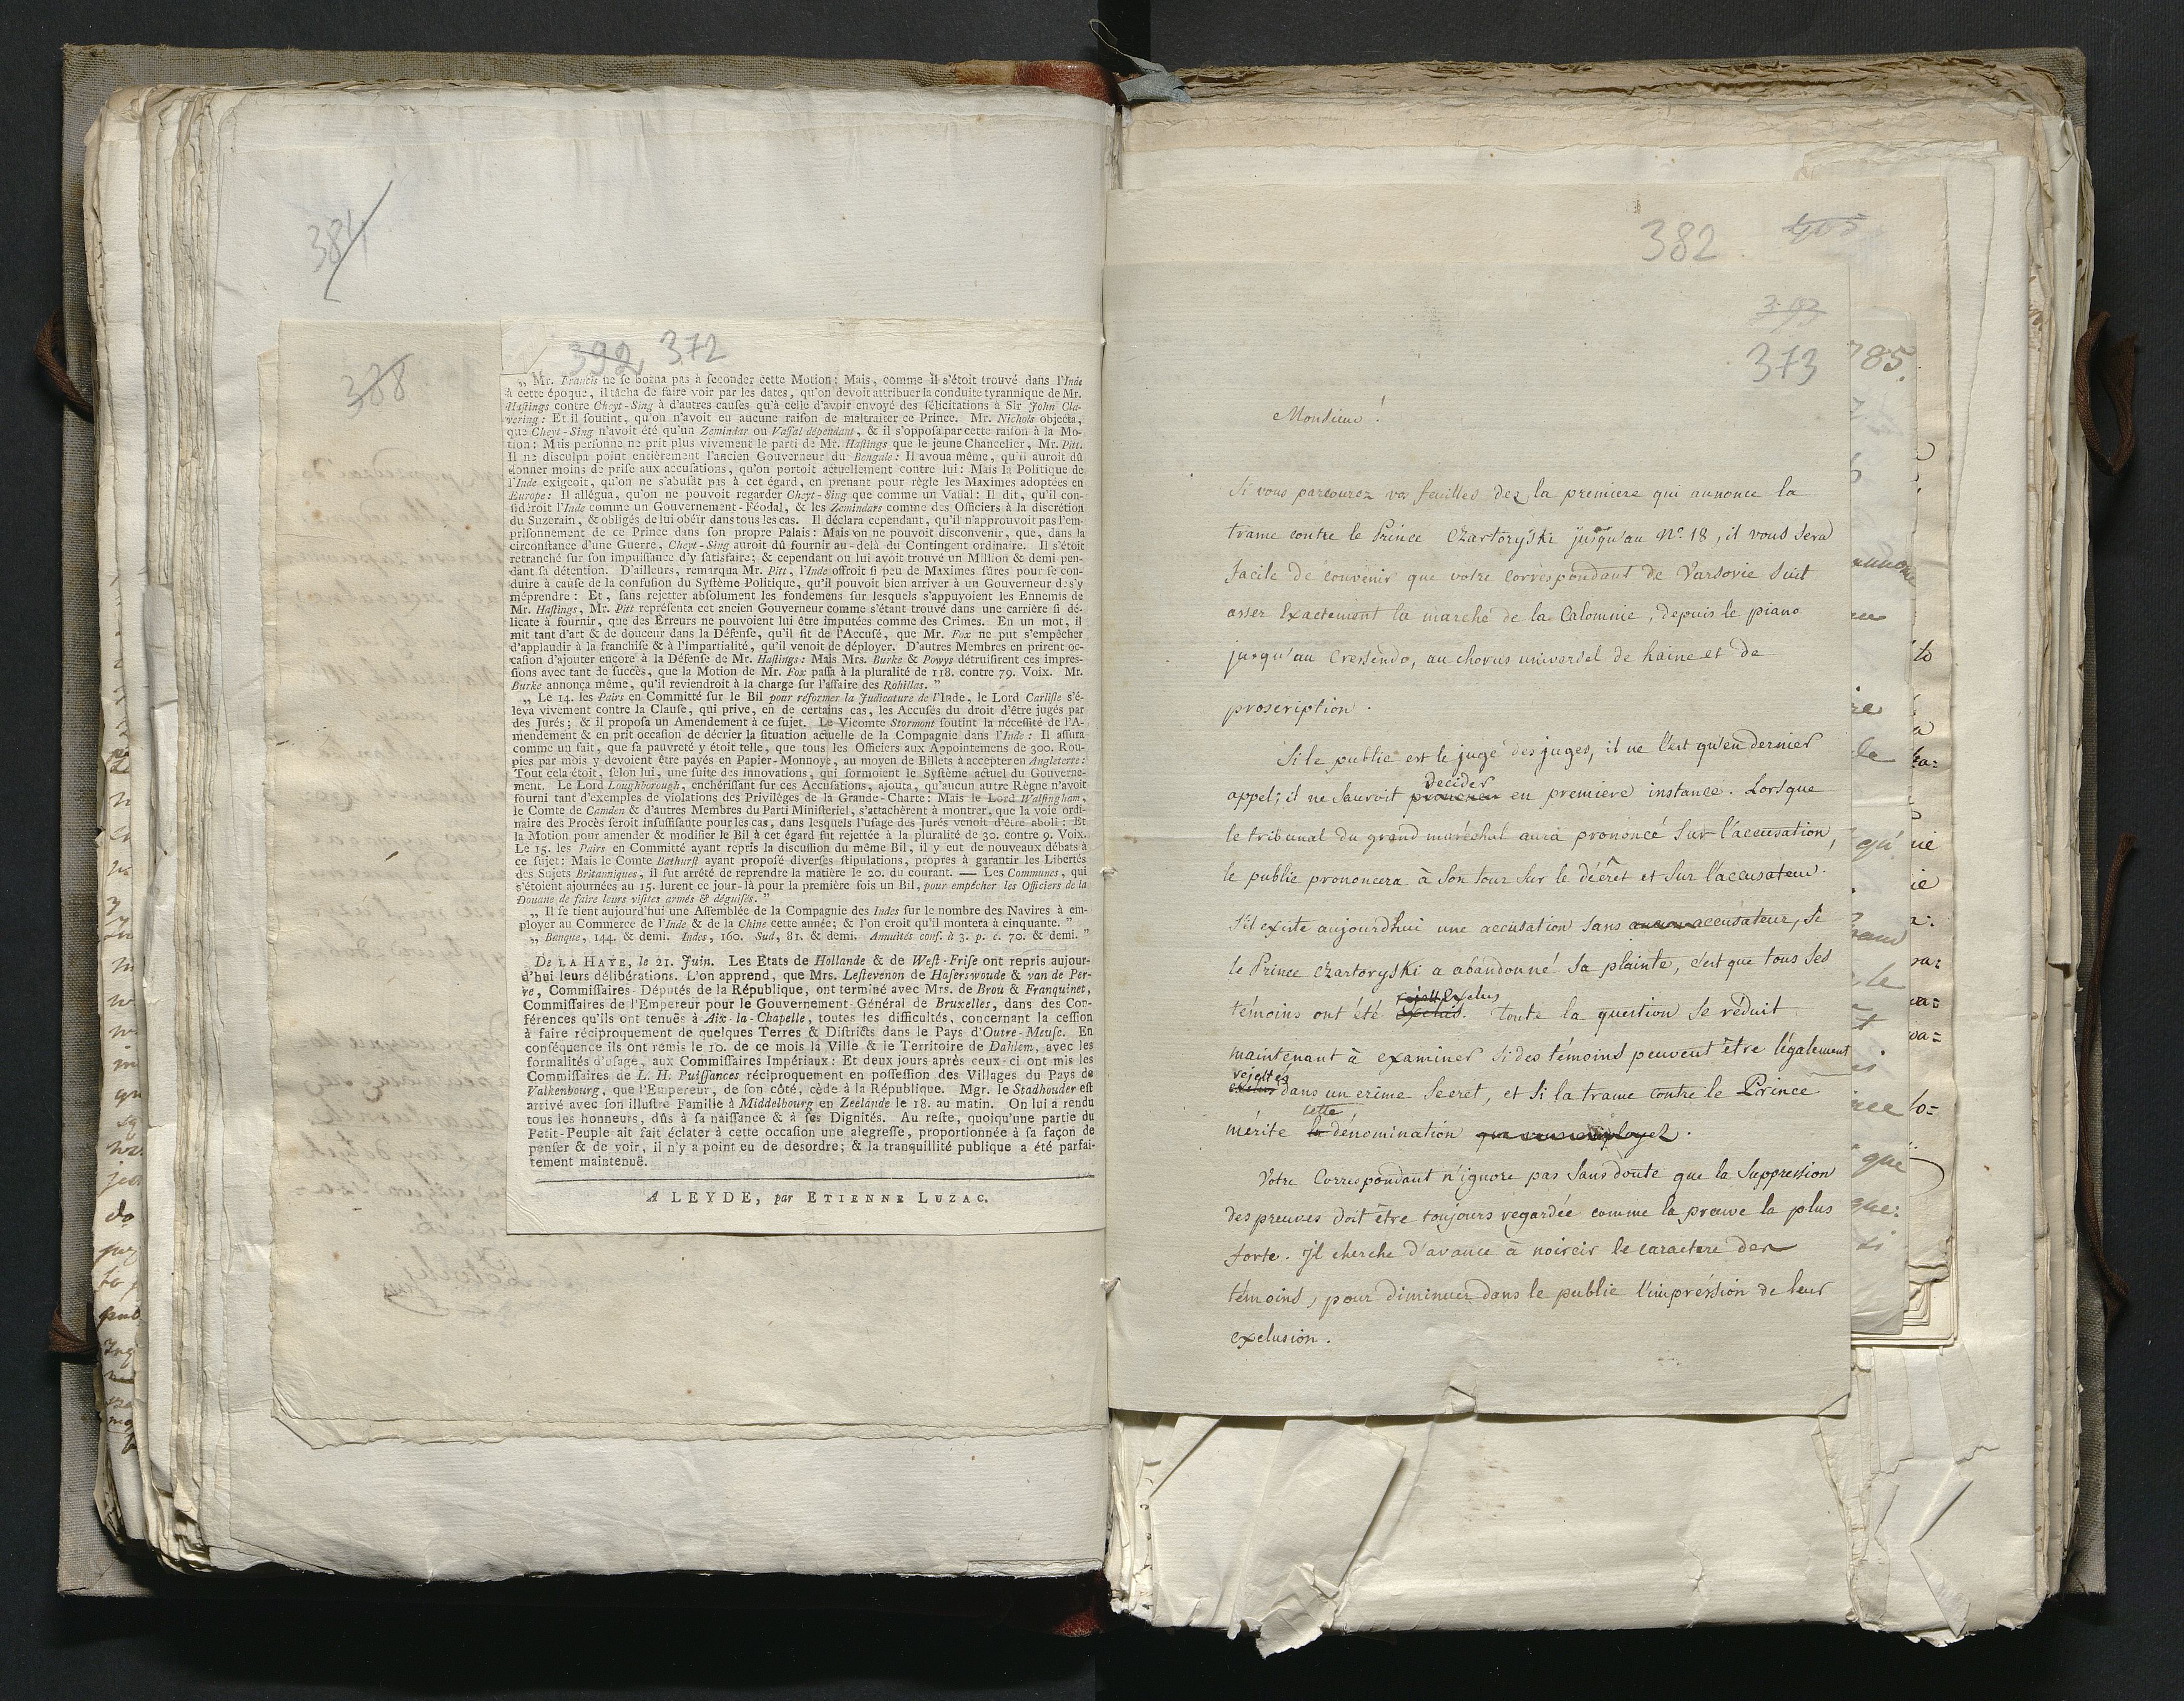 384
388
392 372
„ Mr. Francis ne se borna pas à seconder cette Motion: Mais, comme il s'étoit trouvé dans l'Inde
à cette époque, il tâcha de faire voir par les dates, qu'on devoit attribuer la conduite tyrannique de Mr.
Hastings contre Cheyt-Sing à d'autres causes qu'à celle d'avoir envoyé des félicitations à Sir John Cla-
vering: Et il soutint, qu'on n'avoit eu aucune raison de maltraiter ce Prince. Mr. Nichols objecta,
que Cheyt-Sing n'avoit été qu'un Zemindar ou Vassal dépendant, & il s'opposa par cette raison à la Mo-
tion: Mais personne ne prit plus vivement le parti de Mr. Hastings que le jeune Chancelier, Mr. Pitt.
Il ne disculpa point entièrement l'ancien Gouverneur du Bengale: Il avoua même, qu'il auroit dû
donner moins de prise aux accusations, qu'on portoit actuellement contre lui: Mais la Politique de
l'Inde exigeoit, qu'on ne s'abusât pas à cet égard, en prenant pour règle les Maximes adoptées en
Europe: Il allégua, qu'on ne pouvoit regarder Cheyt-Sing que comme un Vassal: Il dit, qu'il con-
sidéroit l'Inde comme un Gouvernement-Féodal, & les Zemindars comme des Officiers à la discrétion
du Suzerain, & obligés de lui obéïr dans tous les cas. Il déclara cependant, qu'il n'approuvoit pas l'em-
prisonnement de ce Prince dans son propre Palais: Mais on ne pouvoit disconvenir, que, dans la
circonstance d'une Guerre, Cheyt-Sing auroit dû fournir au-delà du Contingent ordinaire. Il s'étoit
retranché sur son impuissance d'y satisfaire; & cependant on lui avoit trouvé un Million & demi pen-
dant sa détention. D'ailleurs, remarqua Mr. Pitt, l'Inde offroit si peu de Maximes sûres pour se con-
duire à cause de la confusion du Système Politique, qu'il pouvoit bien arriver à un Gouverneur de s'y
méprendre: Et, sans rejetter absolument les fondemens sur lesquels s'appuyoient les Ennemis de
Mr. Hastings, Mr. Pitt représenta cet ancien Gouverneur comme s'étant trouvé dans une carrière si dé-
licate à fournir, que des Erreurs ne pouvoient lui être imputées comme des Crimes. En un mot, il
mit tant d'art & de douceur dans la Défense, qu'il fit de l'Accusé, que Mr. Fox ne put s'empêcher
d'applaudir à la franchise & à l'impartialité, qu'il venoit de déployer. D'autres Membres en prirent oc-
casion d'ajouter encore à la Défense de Mr. Hastings: Mais Mrs. Burke & Powys détruisirent ces impres-
sions avec tant de succès, que la Motion de Mr. Fox passa à la pluralité de 118. contre 79. Voix. Mr.
Burke annonça même, qu'il reviendroit à la charge sur l'affaire des Rohillas. ”
„ Le 14. les Pairs en Committé sur le Bil pour réformer la Judicature de l'Inde, le Lord Carlisle s'é-
leva vivement contre la Clause, qui prive, en de certains cas, les Accusés du droit d'être jugés par
des Jurés; & il proposa un Amendement à ce sujet. Le Vicomte Stormont soutint la nécessité de l'A-
mendement & en prit occasion de décrier la situation actuelle de la Compagnie dans l'Inde: Il assura
comme un fait, que sa pauvreté y étoit telle, que tous les Officiers aux Appointemens de 300. Rou-
pies par mois y devoient être payés en Papier-Monnoye, au moyen de Billets à accepter en Angleterre:
Tout cela étoit, selon lui, une suite des innovations, qui formoient le Système actuel du Gouverne-
ment. Le Lord Loughborough, enchérissant sur ces Accusations, ajouta, qu'aucun autre Règne n'avoit
fourni tant d'exemples de violations des Privilèges de la Grande-Charte: Mais le Lord Walsingham,
le Comte de Camden & d'autres Membres du Parti Ministeriel, s'attachèrent à montrer, que la voie ordi-
naire des Procès seroit insuffisante pour les cas, dans lesquels l'usage des Jurés venoit d'être aboli: Et
la Motion pour amender & modifier le Bil à cet égard fut rejettée à la pluralité de 30. contre 9. Voix.
Le 15. les Pairs en Committé ayant repris la discussion du même Bil, il y eut de nouveaux débats à
ce sujet: Mais le Comte Bathurst ayant proposé diverses stipulations, propres à garantir les Libertés
des Sujets Britanniques, il fut arrêté de reprendre la matière le 20. du courant. — Les Communes, qui
s'étoient ajournées au 15. lurent ce jour-là pour la première fois un Bil, pour empêcher les Officiers de la
Douane de faire leurs visites armés & déguisés. ”
„ Il se tient aujourd'hui une Assemblée de la Compagnie des Indes sur le nombre des Navires à em-
ployer au Commerce de l'Inde & de la Chine cette année; & l'on croit qu'il montera à cinquante. ”
„ Banque, 144. & demi. Indes, 160. Sud, 81. & demi. Annuités cons. à 3. p. c. 70. & demi. ”
De LA HAYE, le 21. Juin. Les Etats de Hollande & de West-Frise ont repris aujour-
d'hui leurs délibérations. L'on apprend, que Mrs. Lestevenon de Haserswoude & van de Per-
re, Commissaires-Députés de la République, ont terminé avec Mrs. de Brou & Franquinet,
Commissaires de l'Empereur pour le Gouvernement-Général de Bruxelles, dans des Con-
férences qu'ils ont tenuës à Aix-la-Chapelle, toutes les difficultés, concernant la cession
à faire réciproquement de quelques Terres & Districts dans le Pays d'Outre-Meuse. En
conséquence ils ont remis le 10. de ce mois la Ville & le Territoire de Dahlem, avec les
formalités d'usage, aux Commissaires Impériaux: Et deux jours après ceux-ci ont mis les
Commissaires de L. H. Puissances réciproquement en possession des Villages du Pays de
Valkenbourg, que l'Empereur, de son côté, cède à la République. Mgr. le Stadhouder est
arrivé avec son illustre Famille à Middelbourg en Zeelande le 18. au matin. On lui a rendu
tous les honneurs, dûs à sa naissance & à ses Dignités. Au reste, quoiqu'une partie du
Petit-Peuple ait fait éclater à cette occasion une alegresse, proportionnée à sa façon de
penser & de voir, il n'y a point eu de desordre; & la tranquillité publique a été parfai-
tement maintenuë.
A LEYDE, par ETIENNE LUZAC.
382. 405
393
373
785.
Monsieur!
Si vous parcourez vos feuilles dez la premiere qui annonce la
trame contre le Prince Czartoryski jusqu'au No. 18, il vous sera
facile de convenir que votre correspondant de Varsovie suit
assez exactement la marche de la Calomnie, depuis le piano
jusqu'au Cressendo, au chorus universel de haine et de
proscription.
Si le public est le juge des juges, il ne l'est qu'en dernier
decider
appel; il ne sauroit prononcer en premiere instance. Lorsque
le tribunal du grand maréchal aura prononcé sur l'accusation,
le public prononcera à son tour sur le décrêt et sur l'accusateur.
S'il existe aujourdhui une accusation sans accusateur, si
le Prince Czartoryski a abandonné sa plainte, c'est que tous ses
exclus
témoins ont été exclus. Toute la question se réduit
maintenant à examiner si des témoins peuvent être légalement
rejettés
exclus dans un crime secret, et si la trame contre le Prince
cette
mérite la dénomination que vous employez.
Votre Correspondant n'ignore pas sans doute que la suppression
des preuves doit être toujours regardée comme la preuve la plus
forte. Jl cherche d'avance à noircir le caractere des
témoins, pour diminuer dans le public l'impréssion de leur
exclusion.